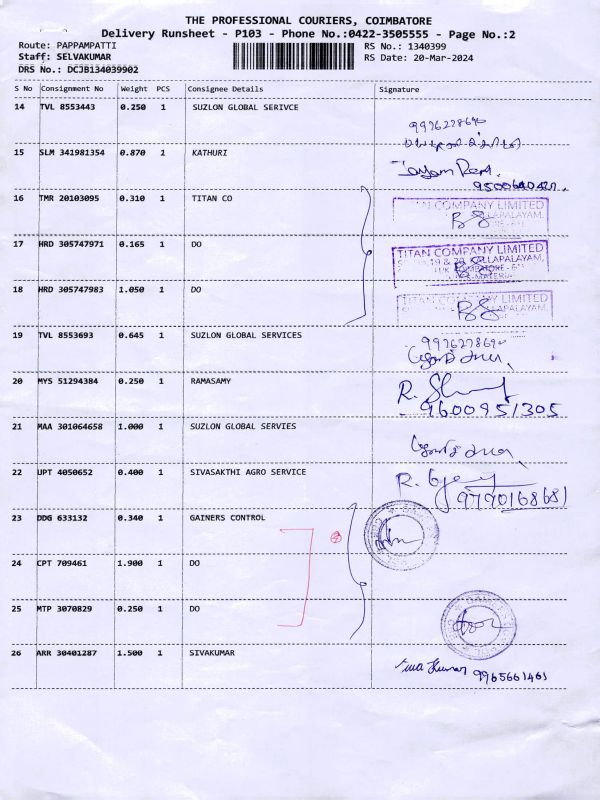 THE PROFESSIONAL COURIERS, COIMBATORE
Delivery Runsheet - P103 - Phone No.:0422-3505555 - Page No.:2
Route: PAPPAMPATTI RS No.: 1340399
Staff: SELVAKUMAR RS Date: 20-Mar-2024
DRS No.: DCJB134039902
S No Consignment No Weight PCS Consignee Details Signature
14 TVL 8553443 0.250 1 SUZLON GLOBAL SERIVCE
15 SLM 341981354 0.870 1 KATHURI
16 TMR 20103095 0.310 1 TITAN CO
TITAN COMPANY LIMITED
17 HRD 305747971 0.165 1 DO
TITAN COMPANY LIMITED
18 HRD 305747983 1.050 1 DO
TITAN COMPANY LIMITED
19 TVL 8553693 0.645 1 SUZLON GLOBAL SERVICES
20 MYS 51294384 0.250 1 RAMASAMY
9600951305
21 MAA 301064658 1.000 1 SUZLON GLOBAL SERVIES
22 UPT 4050652 0.400 1 SIVASAKTHI AGRO SERVICE
9790168681
23 DDG 633132 0.340 1 GAINERS CONTROL
24 CPT 709461 1.900 1 DO
25 MTP 3070829 0.250 1 DO
26 ARR 30401287 1.500 1 SIVAKUMAR
9965661461